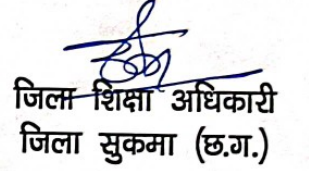 जिला शिक्षा अधिकारी
जिला सुकमा (छ.ग.)